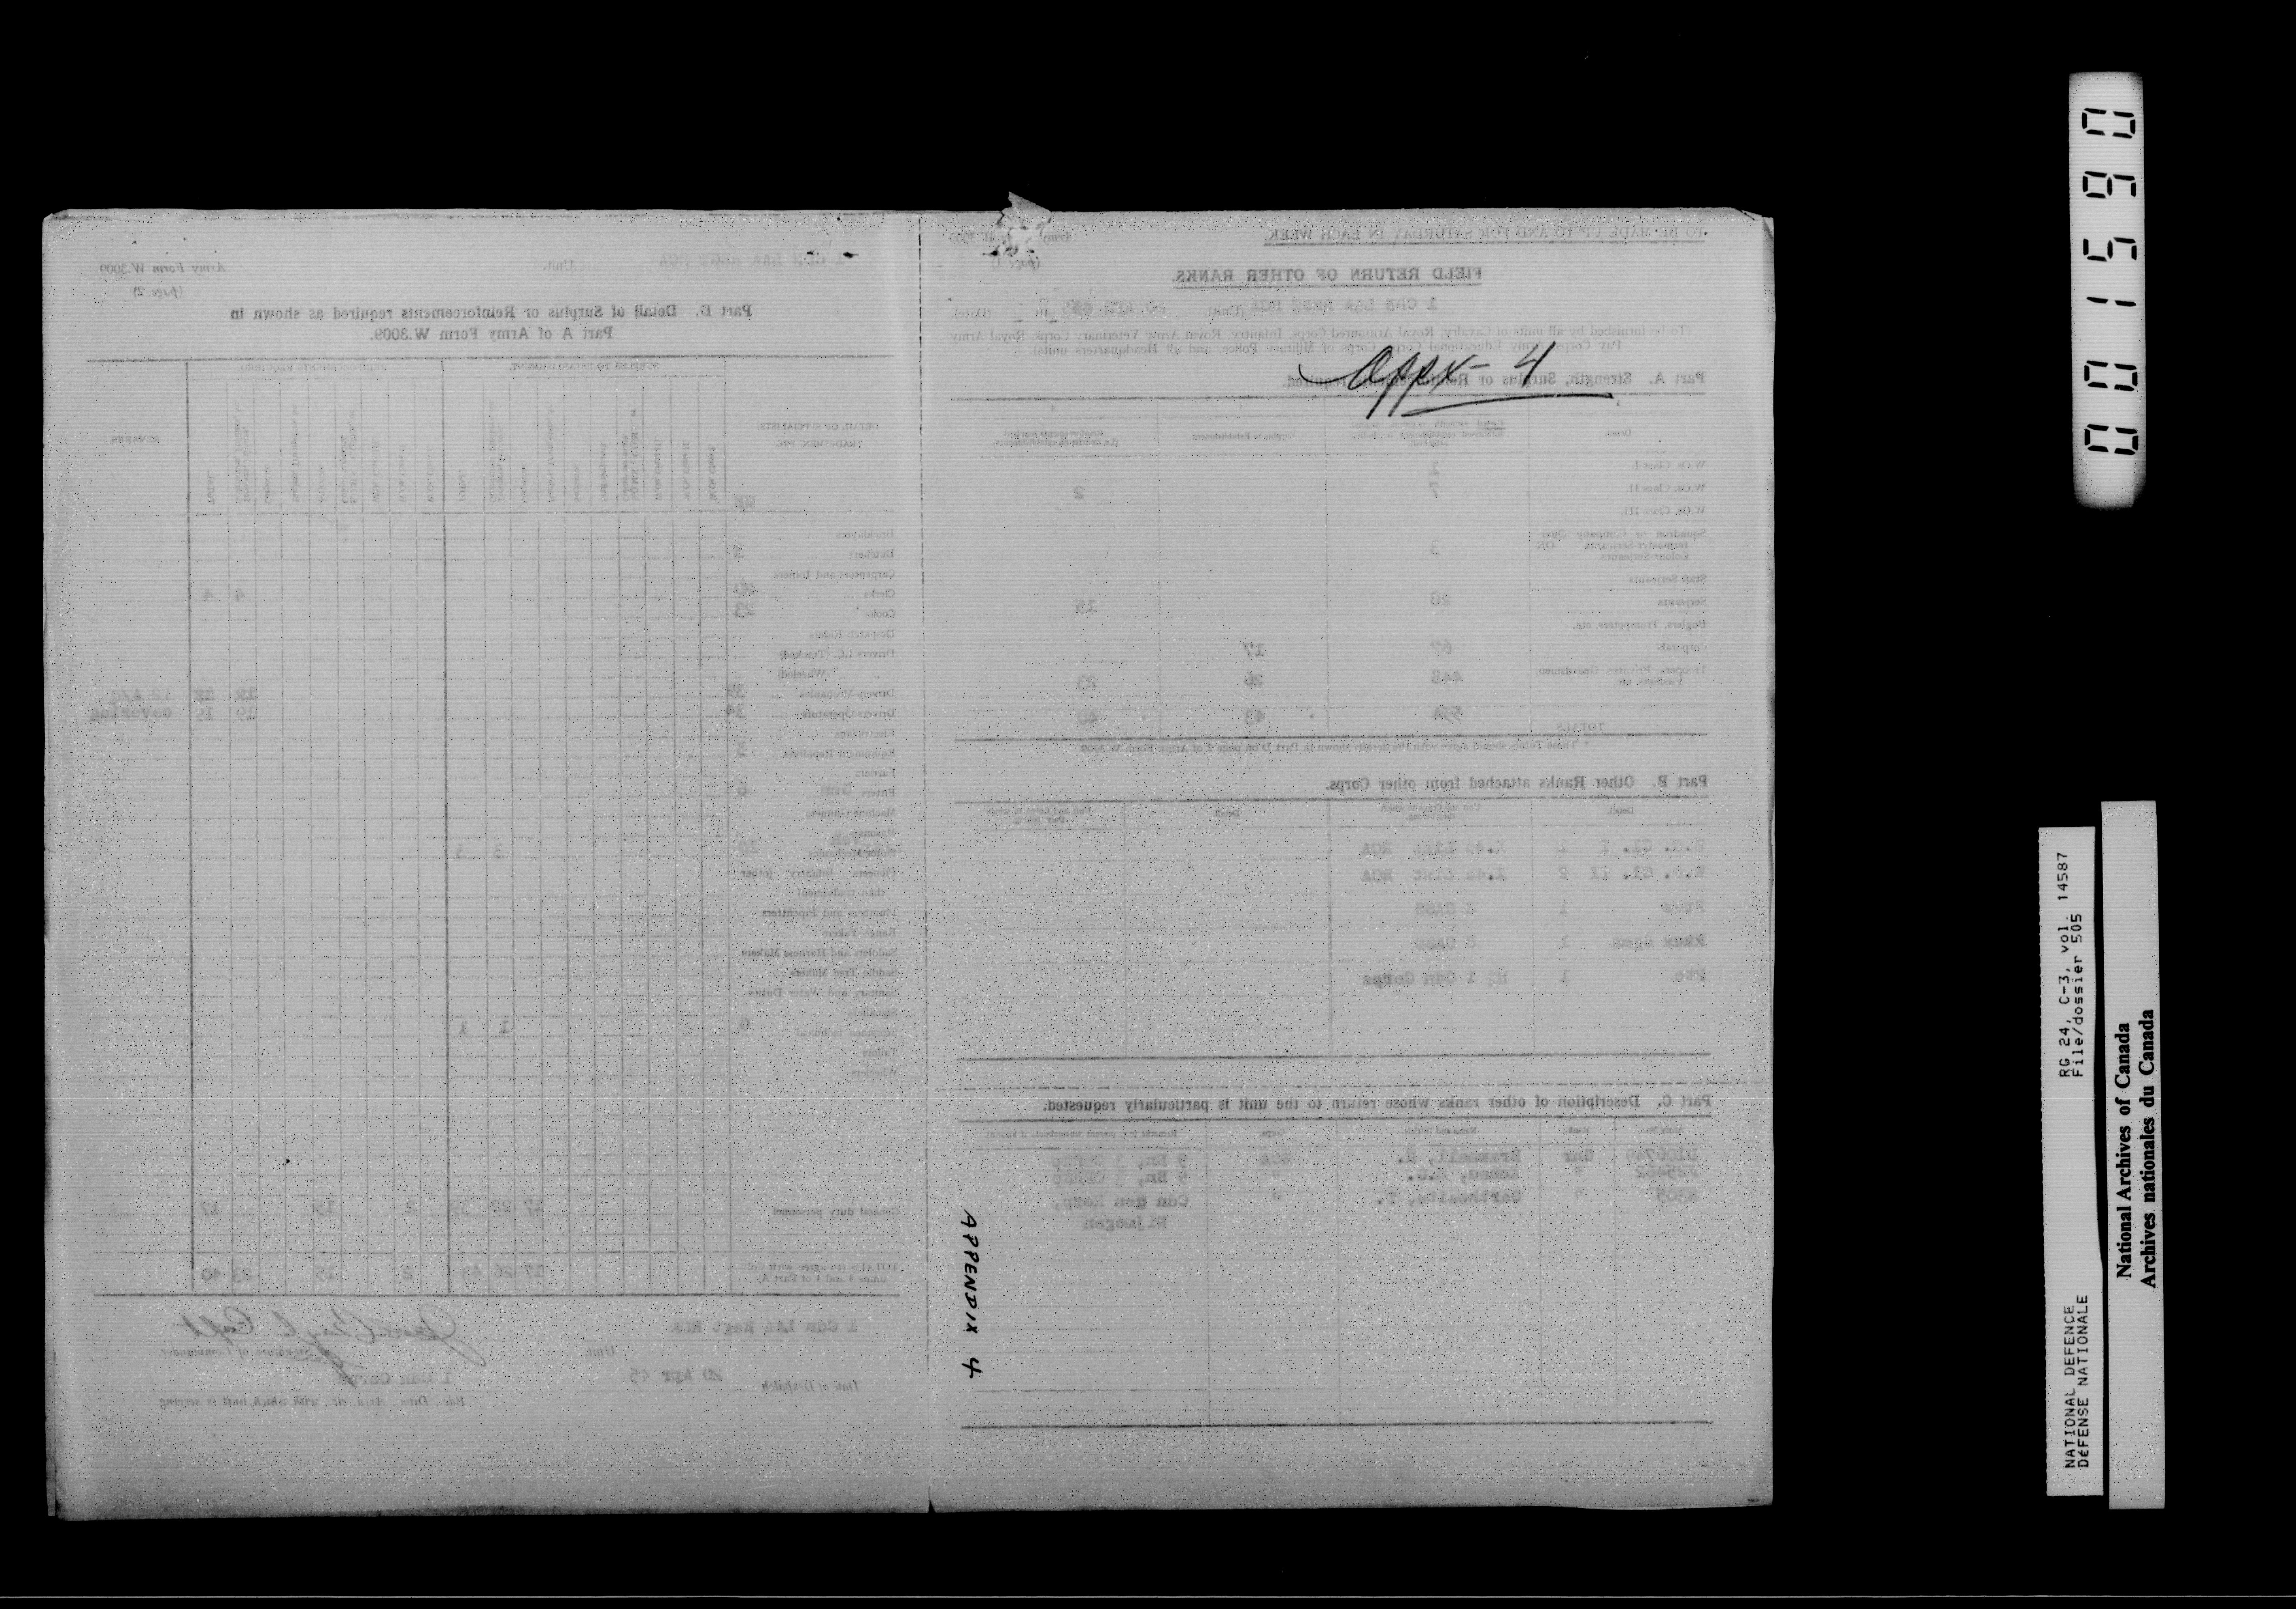 TO BE MADE UP TO AND FOR SATURDAY IN EACH WEEK.
FIELD RETURN OF OTHER RANKS.
1 CDN LAA REGT RCA (Unit). 20 APR 45 (Date).
(To be furnished by all units of Cavalry, Royal Armoured Corps, Infantry, Royal Army Veterinary Corps, Royal Army
Pay Corps, Army Educational Corps, Corps of Military Police, and all Headquarters units).
Appx- 4
Part A. Strength, Surplus or Reinforcements required.
Detail.
Surplus to Establishment.
W.Os. Class I. 1
W.Os. Class II. 7 2
W.Os. Class III.
Squadron or Company Quar-
termaster-Serjeants OR 3
Colour-Serjeants
Staff Serjeants
Serjeants 28 15
Buglers, Trumpeters, etc.
Corporals 67 17
Troopers, Privates, Guardsmen, 448 26 23
Fusiliers, etc.
TOTALS 554 43 40
* These Totals should agree with the details shown in Part D on page 2 of Army Form W.3009.
Part B. Other Ranks attached from other Corps.
Detail. Unit and Corps to which they belong. Detail. Unit and Corps to which they belong.
W.O. Cl. I 1 X.4a List RCA
W.O. Cl. II 2 X.4a List RCA
Ptes 1
1
Pte 1 HQ 1 Cdn Corps
Part C. Description of other ranks whose return to the unit is particularly requested.
Army No. Rank. Name and Initials. Corps. Remarks (e.g. present whereabouts if known)
D106749 Gnr Bramall, H. RCA 9 Bn, 3
F25462 " " 9 Bn, 3
" Garthwaite, T. " Cdn gen Hosp,
Nijmegen
APPENDIX 4
1 CDN LAA REGT RCA Unit.
Army Form W.3009
(page 2)
Part D. Detail of Surplus or Reinforcements required as shown in
Part A of Army Form W.3009.
DETAIL OF SPECIALISTS, TRADESMEN, ETC.
SURPLUS TO ESTABLISHMENT.
REINFORCEMENTS REQUIRED.
REMARKS
Bricklayers
Butchers 3
Carpenters and Joiners
Clerks 20 4 4
Cooks 23
Despatch Riders
Drivers I.C. (Tracked)
" (Wheeled)
Drivers-Mechanics 39
Drivers-Operators 34 19 19 covering
Electricians
Equipment Repairers
Farriers
Fitters Gun 6
Machine Gunners
Masons
Motor Mechanics 10 3 3
Pioneers, Infantry (other
than tradesmen)
Plumbers and Pipefitters
Range Takers
Saddlers and Harness Makers
Saddle Tree Makers
Sanitary and Water Duties
Signallers
Storemen technical 1 1
Tailors
Wheelers
General duty personnel 17 22 39 2 15 17
TOTALS (to agree with Col-
umns 3 and 4 of Part A) 17 26 43 2 15 23 40
1 Cdn LAA Regt RCA Unit.
Capt
Signature of Commander.
Date of Despatch 20 Apr 45
1 Cdn Corps
Bde., Divn., Area, etc., with which unit is serving
001590
RG 24, C-3, vol. 14587
File/dossier 505
NATIONAL DEFENCE
DéFENSE NATIONALE
National Archives of Canada
Archives nationales du Canada